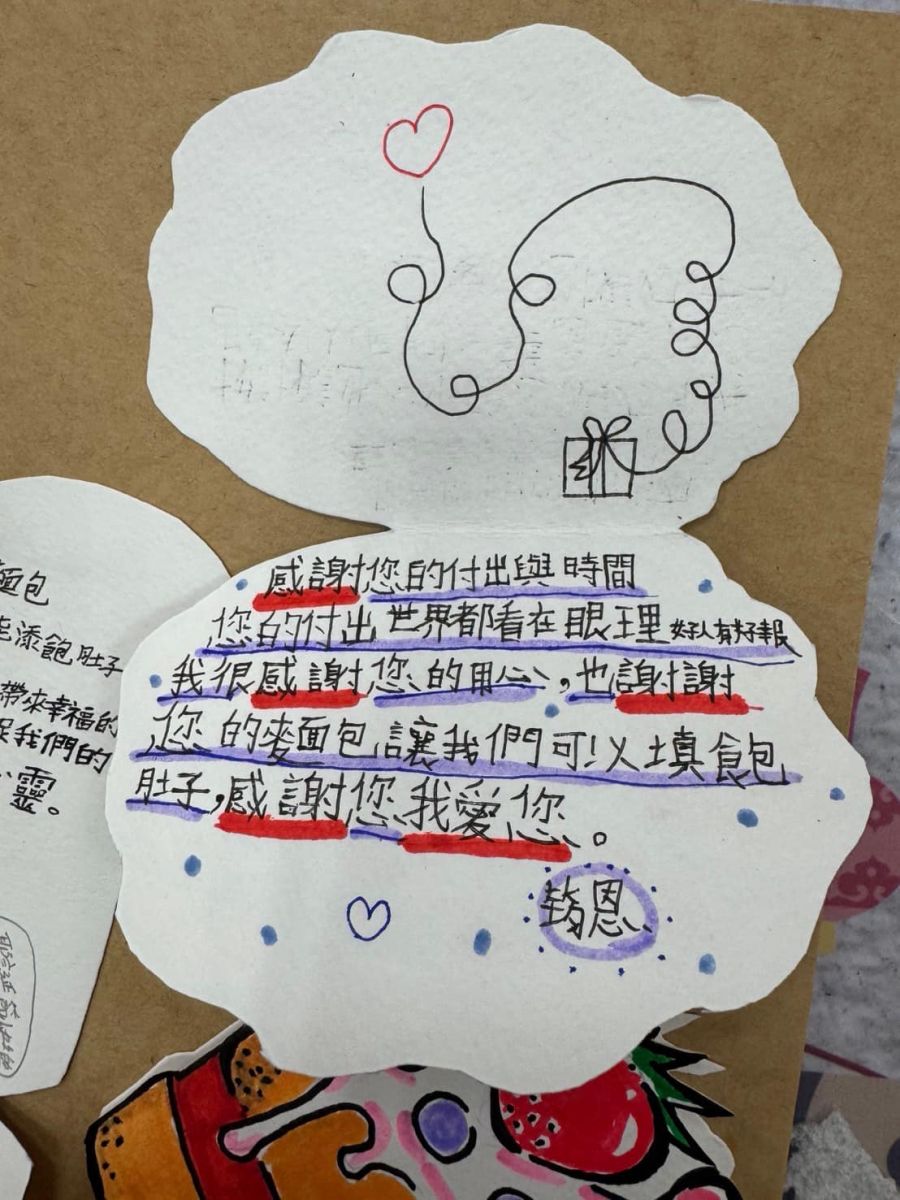 感謝您的付出與時間
您的付出世界都看在眼理好人有好報
我很感謝您的用心,也謝謝
您的麥面包讓我們可以填飽
肚子,感謝您我愛您。
恩
面包
添飽肚子
帶來幸福的
我們的
靈。